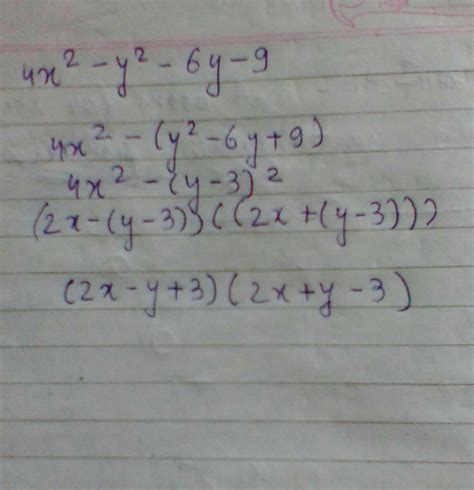 4x² - y² - 6y - 9
4x² - (y² - 6y + 9)
4x² - (y - 3)²
(2x - (y - 3)) ((2x + (y - 3)))
(2x - y + 3) (2x + y - 3)